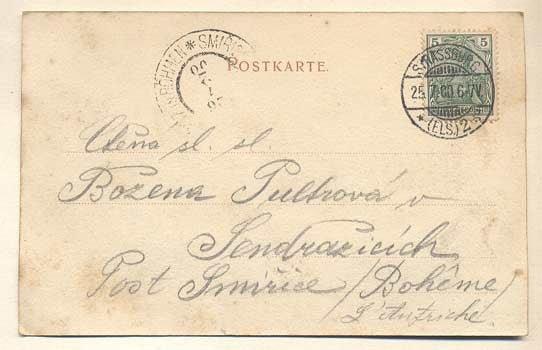 5 5
SMIŘIC
IN BÖHMEN *
POSTKARTE.
STRASSBURG
25.7.00.6-7V.
* (ELS.) 2
Ctěna sl. sl.
Božena Pultrová v
Sendražicích
Post Smiřice / Bohême /
L'Autriche.